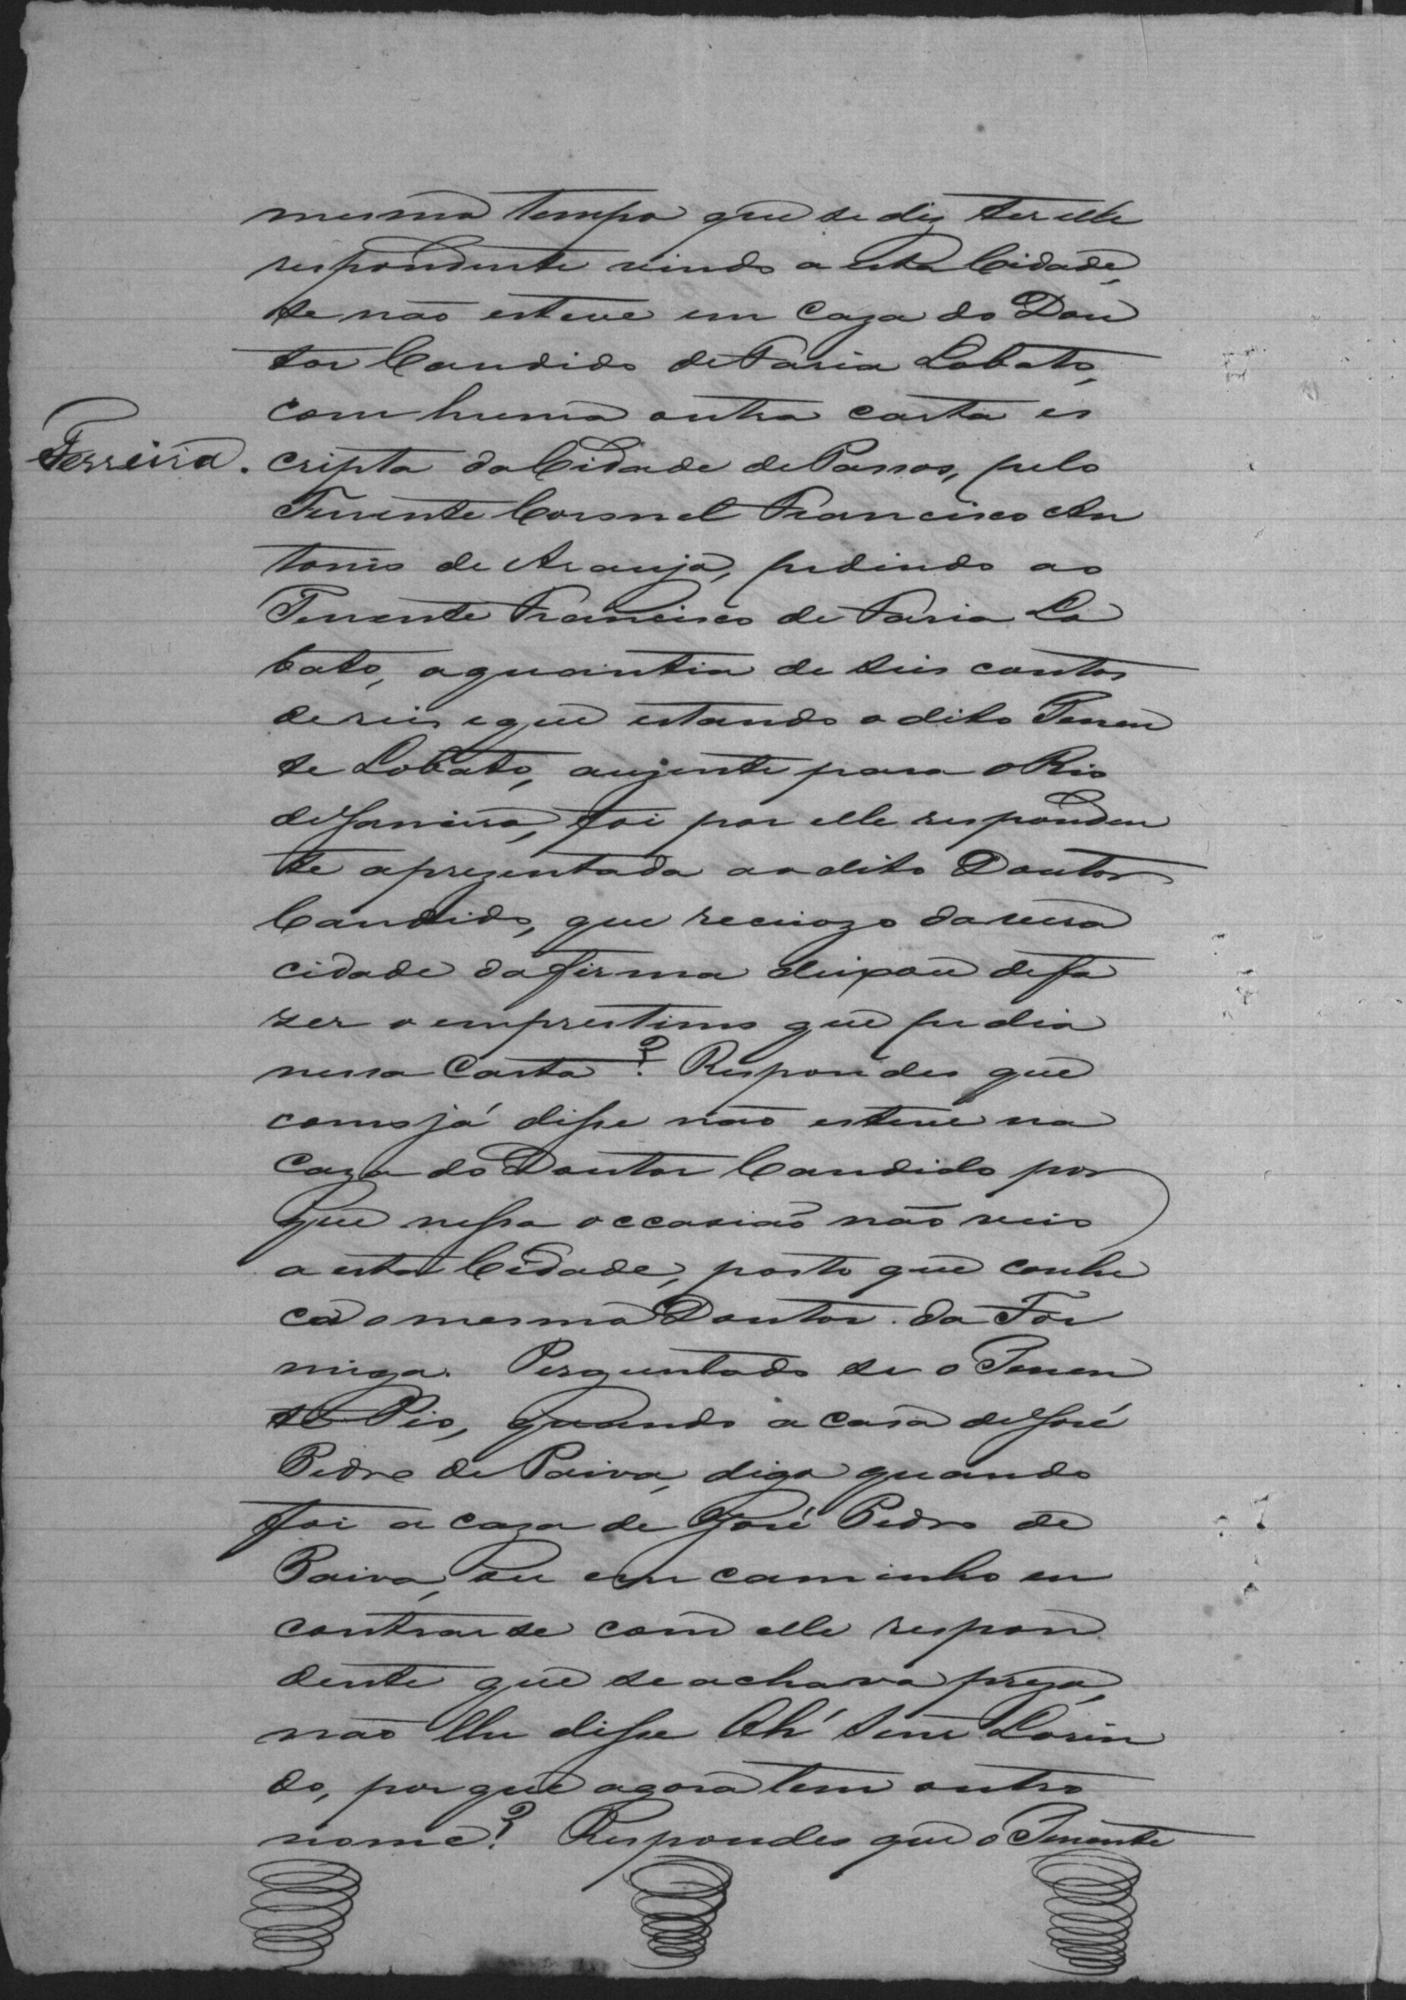 mesmo tempo que se diz ter elle
respondente vindo a esta Cidade,
se não esteve em caza do Dou
tor Candido de Faria Lobato,
com huma outra carta es
Ferreira. cripta da Cidade de Passos, pelo
Tenente Coronel Francisco An
tonio de Araujo, pedindo ao
Tenente Francisco de Faria Lo
bato, a quantia de seis contos
de reis e que estando o dito Tenen
te Lobato, auzente para o Rio
de Janeiro, foi por elle responden
te aprezentada ao dito Doutor
Candido, que receiozo da vera
cidade da firma deixou de fa
zer o emprestimo que pedia
nessa Carta? Respondeo que
como já disse não esteve na
caza do Doutor Candido por
que nessa occasião não veio
a esta Cidade, posto que conhe
ca o mesmo Doutor da For
miga. Perguntado se o Tenen
te Pio, quando a casa de José
Pedro de Paiva, digo quando
foi a caza de José Pedro de
Paiva, ou em caminho en
controu se com elle respon
dente que se achava prezo,
não lhe disse Ah! Senr Lorin
do, por que agora tem outro
nome? Respondeo que o Tenente